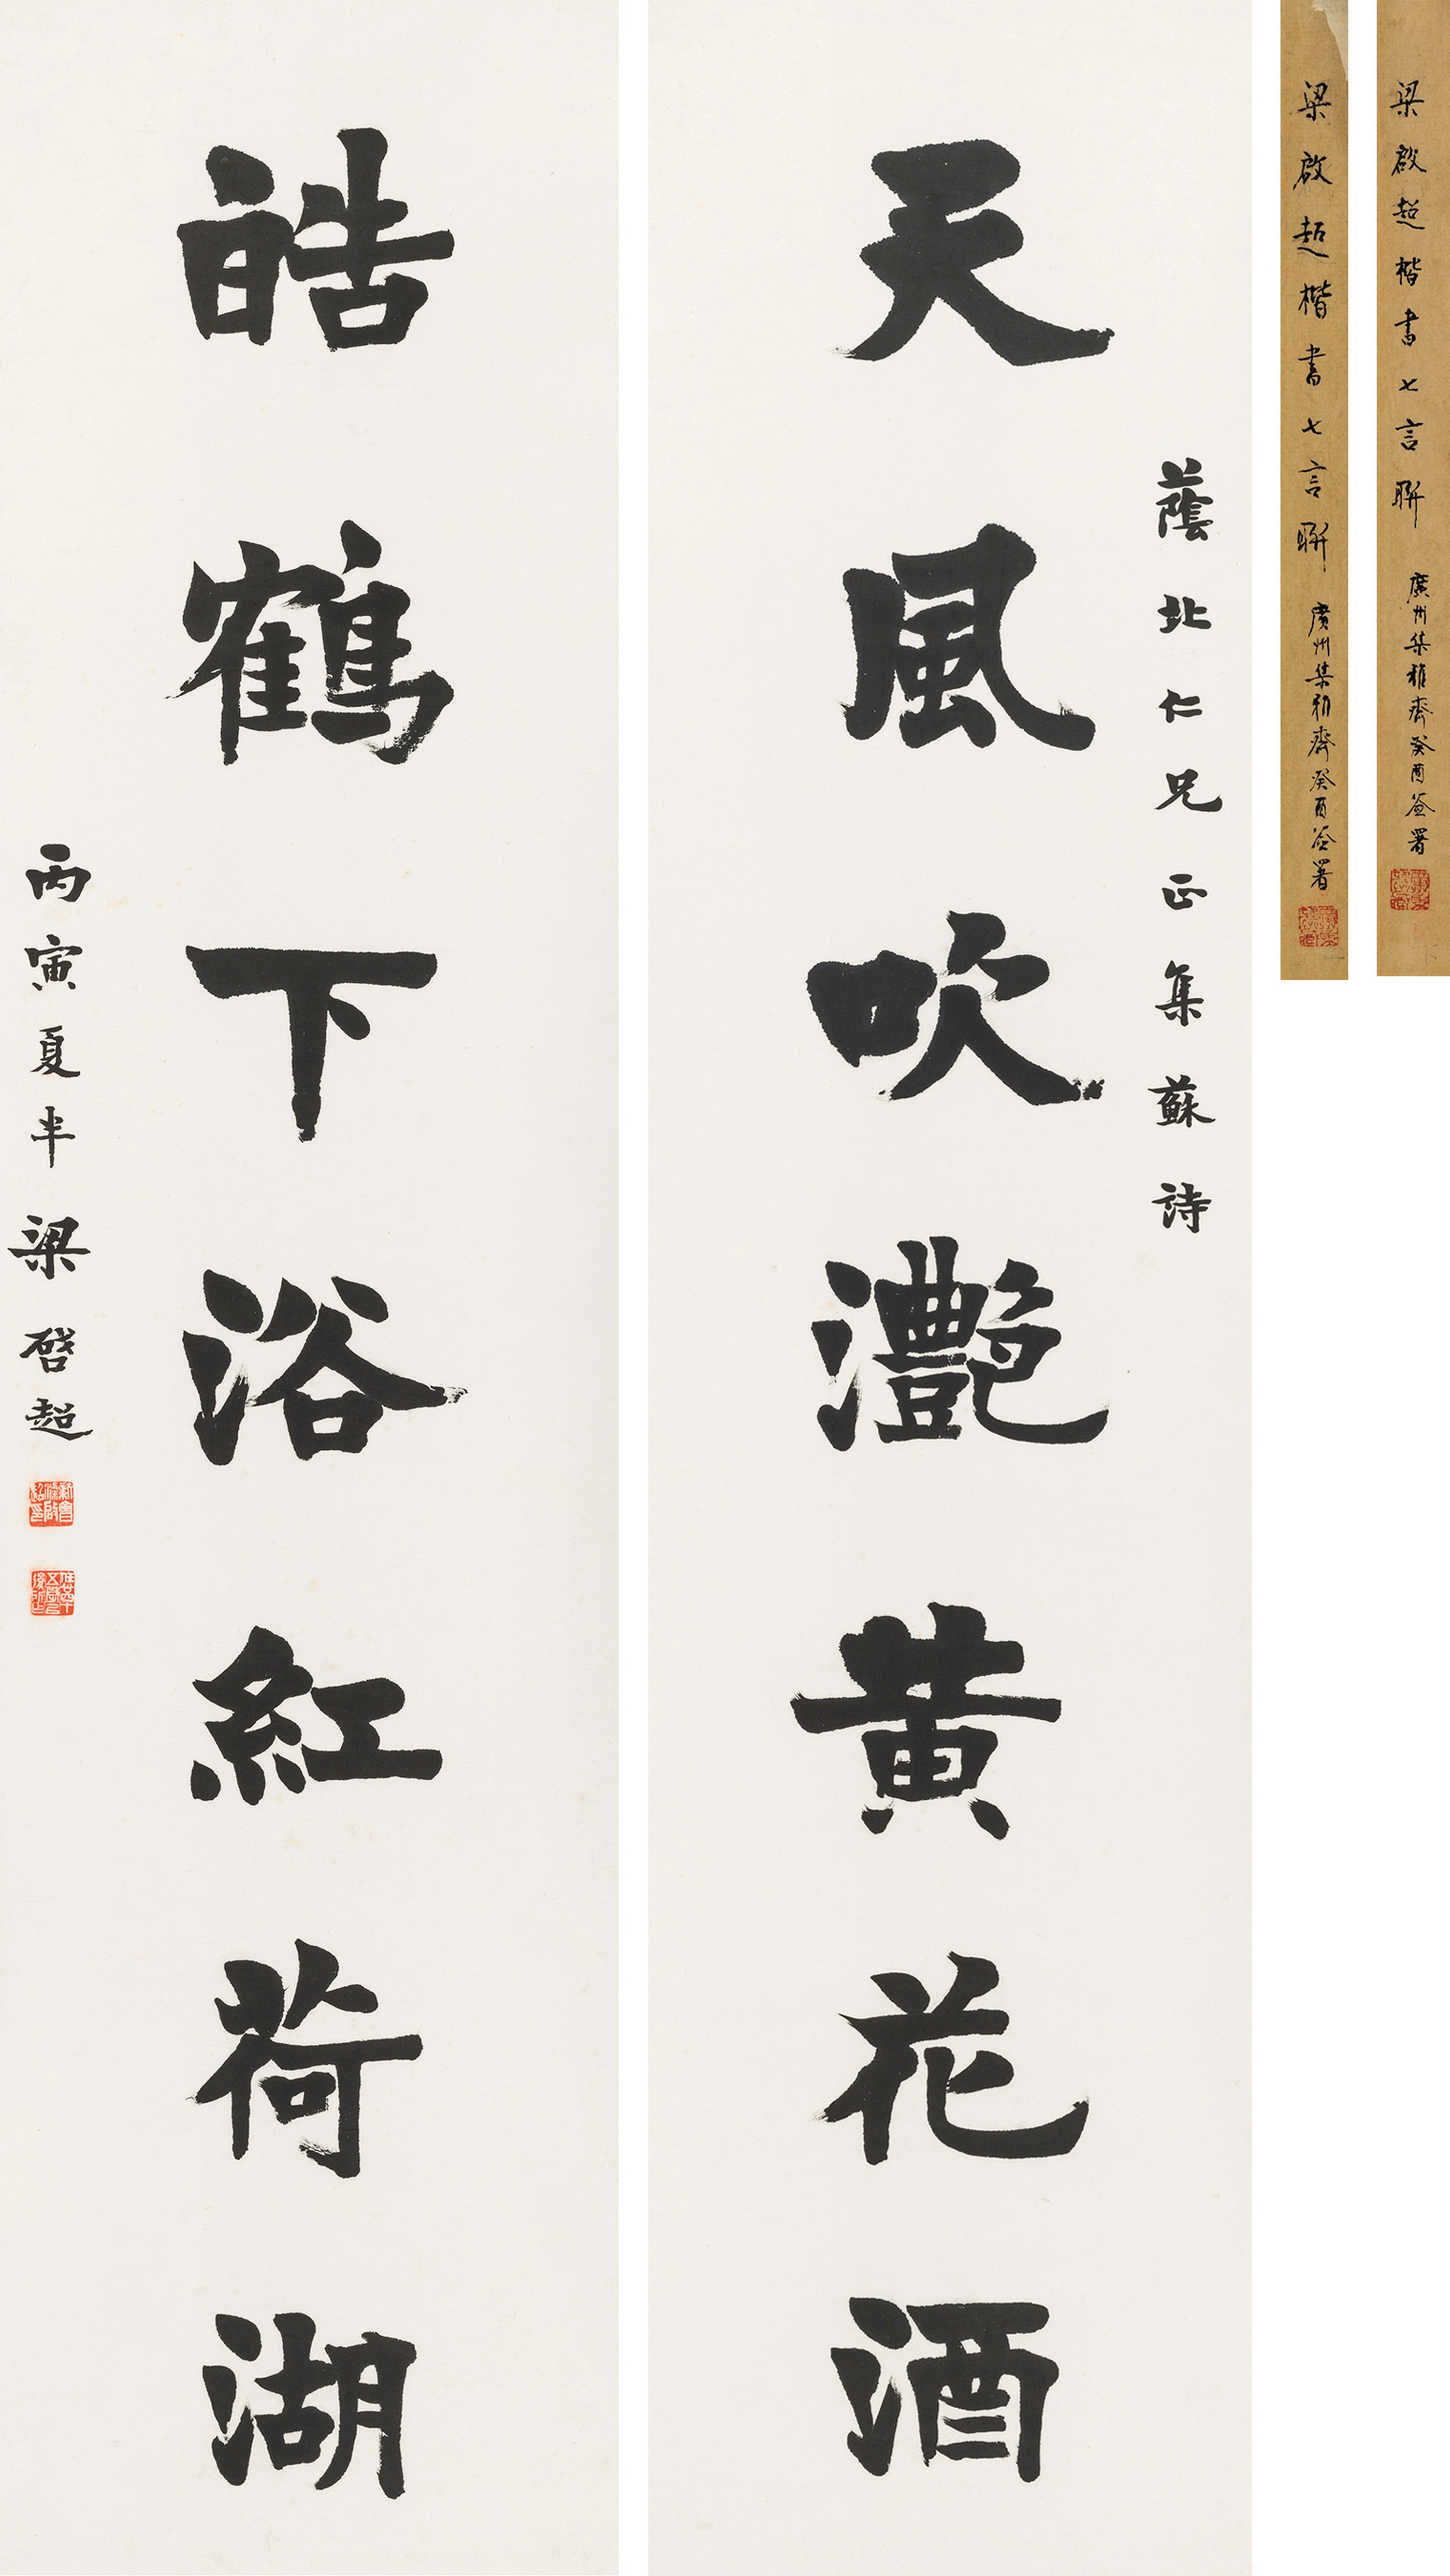 梁啟超楷書七言聯 廣州集雅齋癸酉簽署
梁啟超楷書七言聯 廣州集雅齋癸酉簽署
蔭北仁兄正集蘇詩
天風吹灔黄花酒
皓鶴下浴紅荷湖
丙寅夏半梁啓超
新會梁啟超印